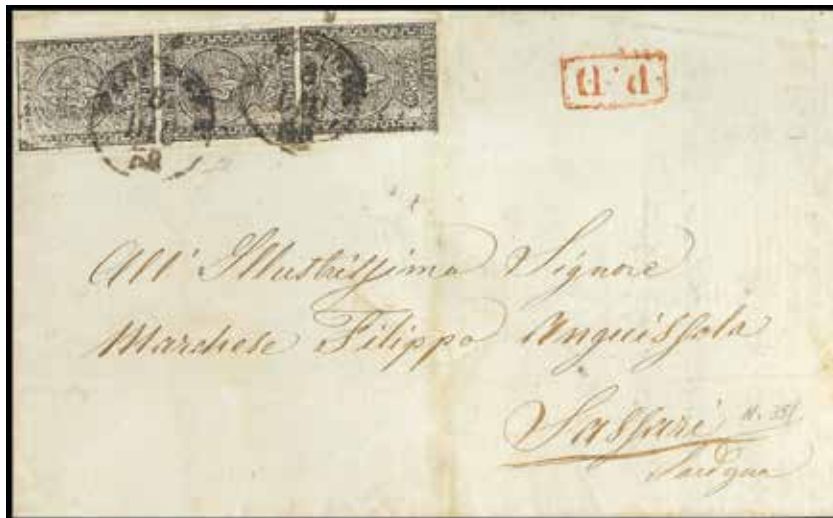 P.D.
All' Illustrissimo Signore
Marchese Filippo Anguissola
Sassari
Sardegna